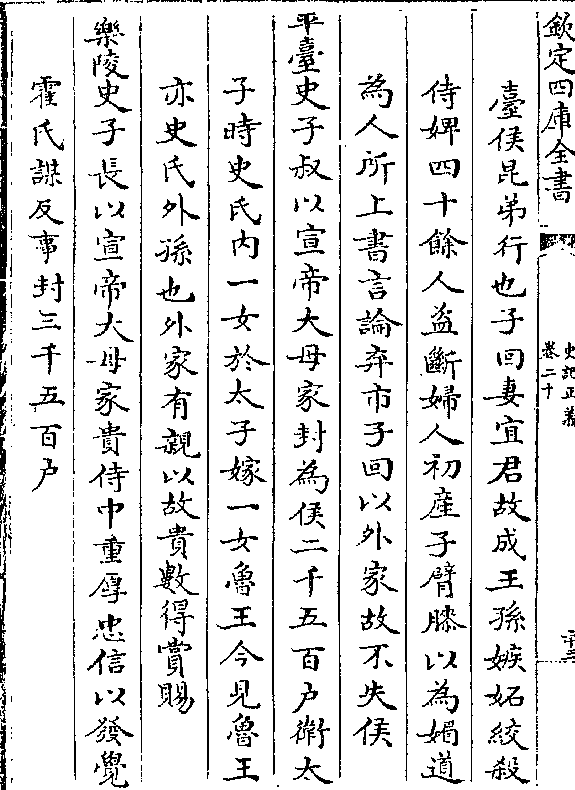 欽定四庫全書
史記正義
卷二十
臺侯昆弟行也子回妻宜君故成王孫嫉妬絞殺
侍婢四十餘人盗斷婦人初産子臂膝以為媚道
為人所上書言論弃市子回以外家故不失侯
平臺史子叔以宣帝大母家封為侯二千五百户衛太
子時史氏内一女於太子嫁一女魯王今見魯王
亦史氏外孫也外家有親以故貴數得賞賜
樂陵史子長以宣帝大母家貴侍中重厚忠信以發覺
霍氏謀反事封三千五百户